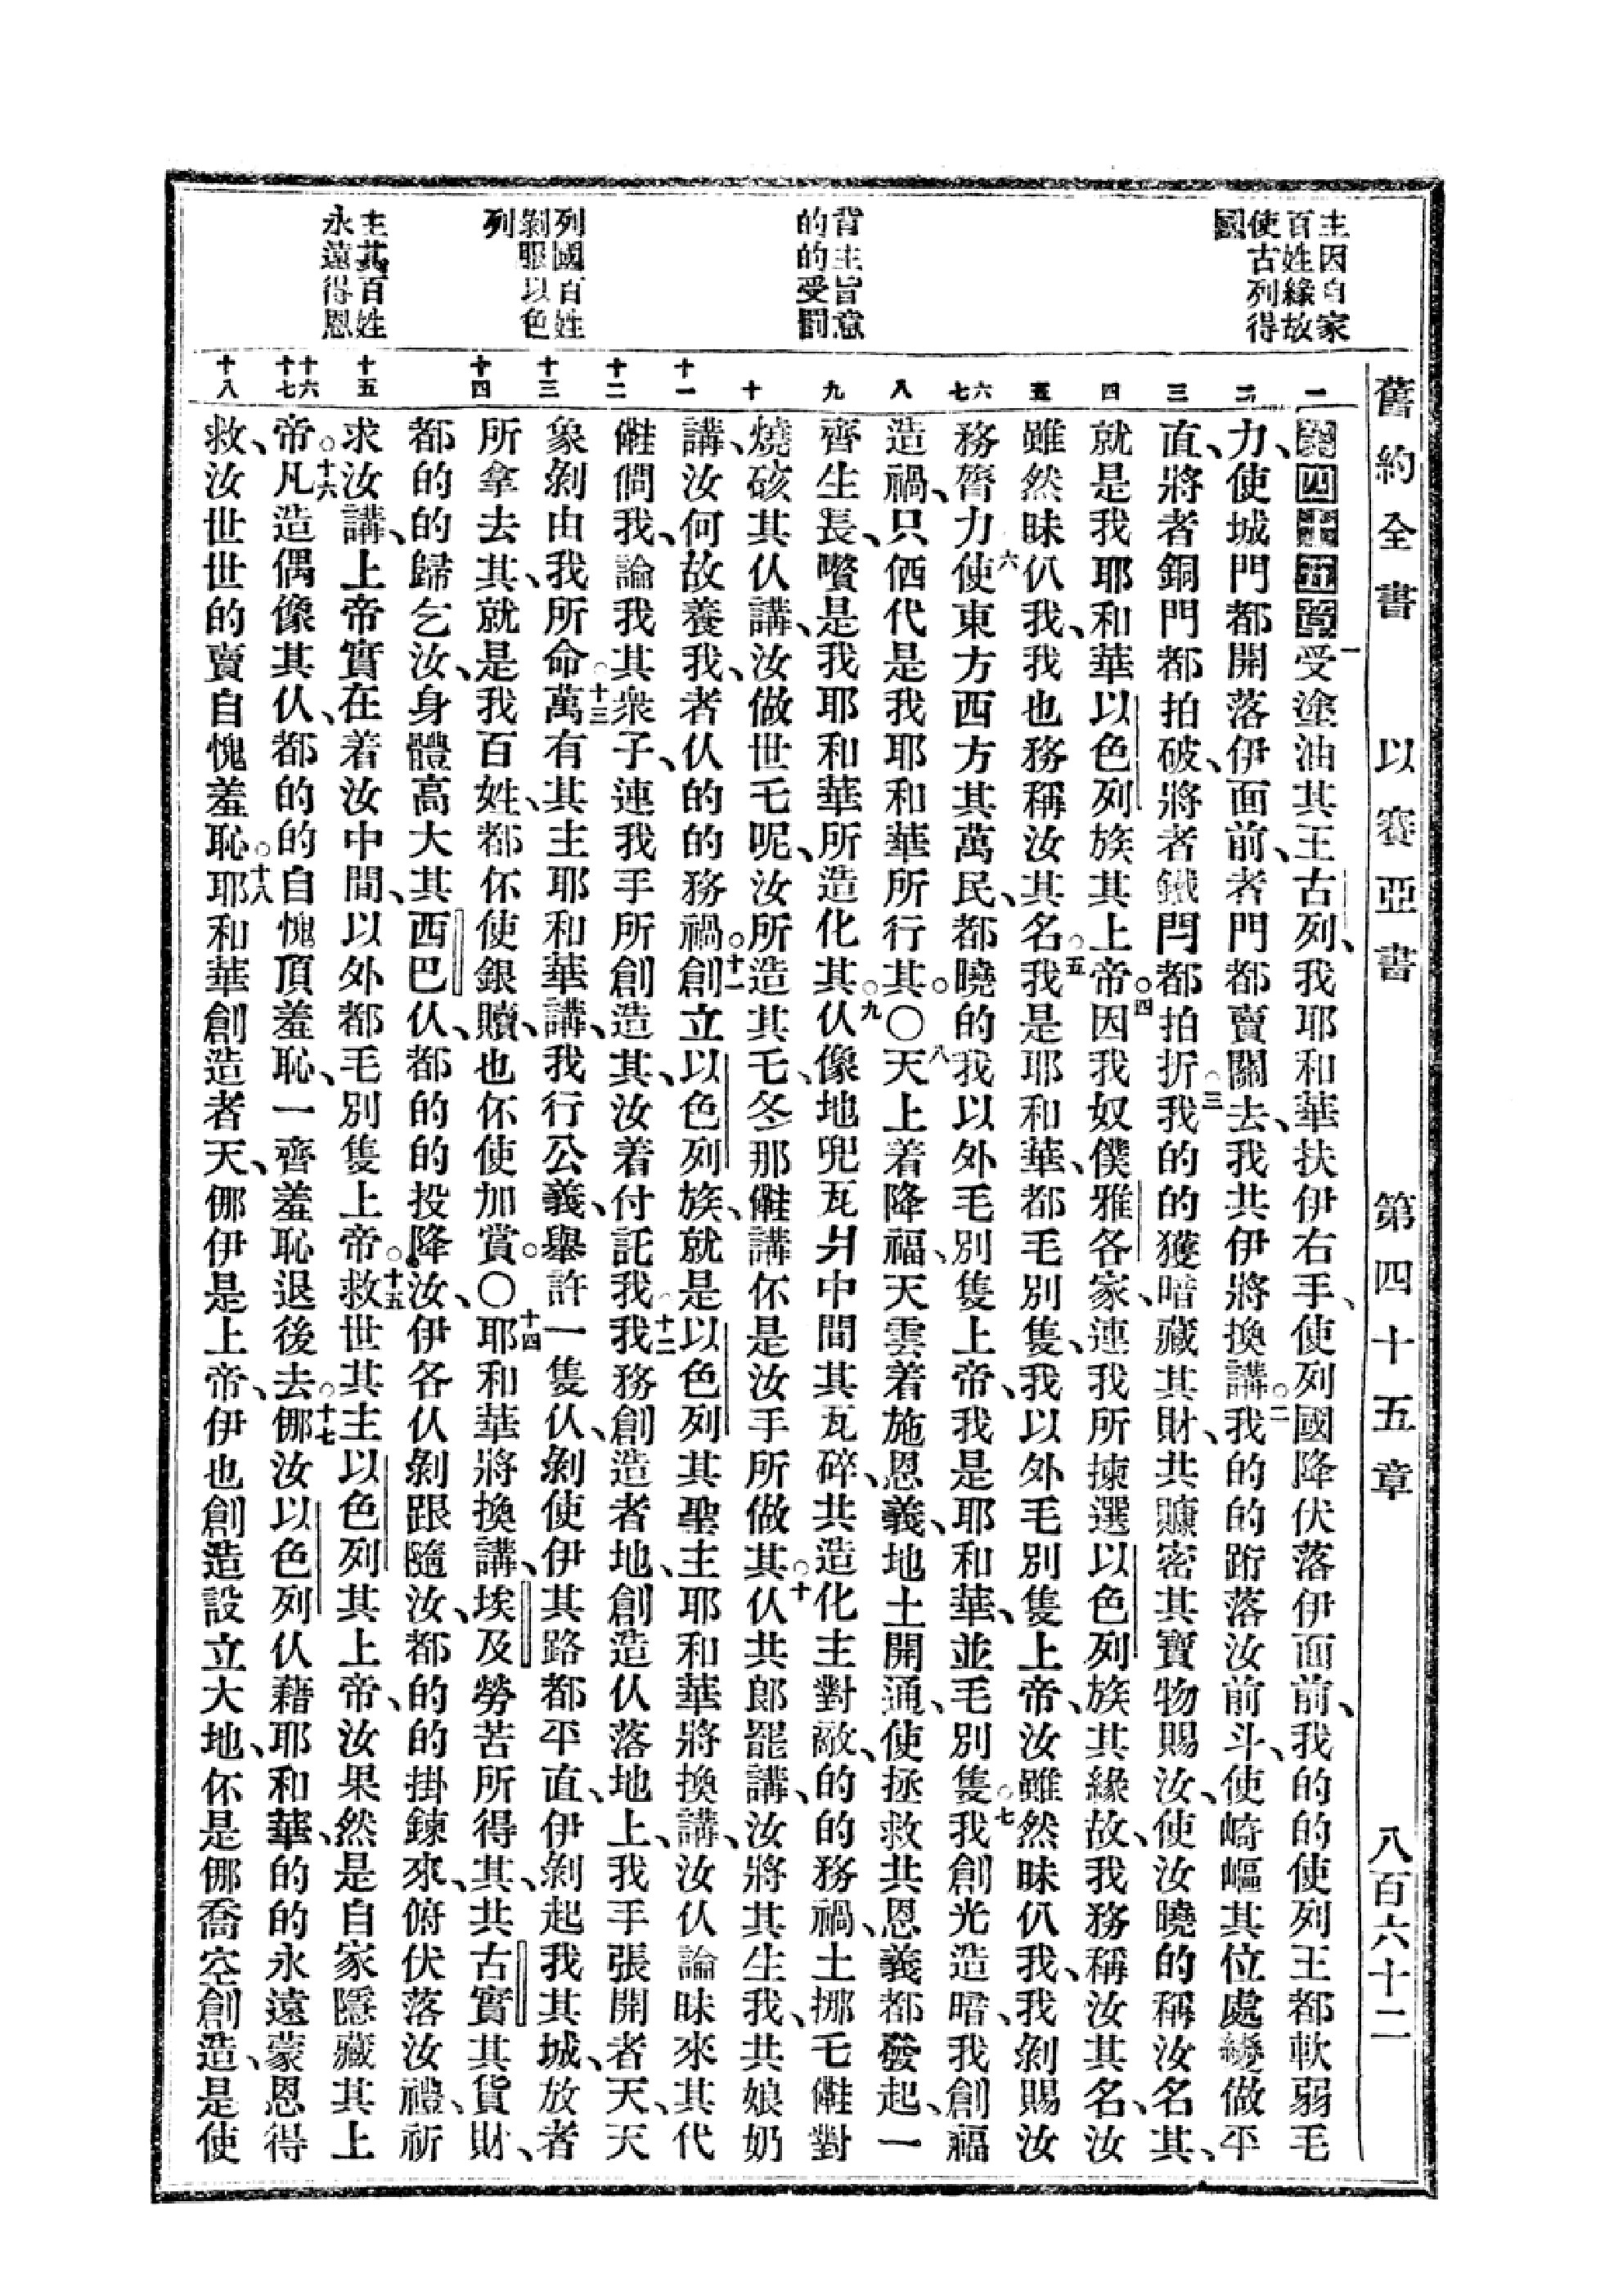 舊約全書 以賽亞書 第四十五章 八百六十二
主因自家
百姓緣故
使古列得
國
背主旨意
的的受罰
列國百姓
剝驅以色
列
主其百姓
永遠得恩
一 二 三 四 五 六 七 八 九 十 十一 十二 十三 十四 十五 十六 十七 十八
第四十五章 一受塗油其王古列、我耶和華、扶伊右手、使列國降伏落伊面前、我的的使列王都軟弱毛
力、使城門都開落伊面前、者門都賣關去、我共伊將換講。二我的的跻落汝前斗、使崎嶇其位處變做平
直、將者銅門都拍破、將者鐵閂都拍折。三我的的獲暗藏其財、共賺密其寶物賜汝、使汝曉的稱汝名其、
就是我耶和華以色列族其上帝。四因我奴僕雅各家、連我所揀選以色列族其緣故、我務稱汝其名、汝
雖然昧仈我、我也務稱汝其名。五我是耶和華、都毛別隻、我以外毛別隻上帝、汝雖然昧仈我、我剝賜汝
務膂力。六使東方西方其萬民、都曉的我以外毛別隻上帝、我是耶和華、並毛別隻。七我創光造暗、我創福
造禍、只仴代是我耶和華所行其。〇八天上着降福、天雲着施恩義、地土開通、使拯救共恩義都發起、一
齊生長、嚽是我耶和華所造化其。九仈像地兜瓦爿中間其瓦碎、共造化主對敵、的的務禍、土挪乇㒕對
燒硋其仈講、汝做世乇呢、汝所造其乇、冬那㒕講伓是汝手所做其。十仈共郎罷講、汝將其生我、共娘奶
講、汝何故養我、者仈的的務禍。十一創立以色列族、就是以色列其聖主耶和華將換講、汝仈論昧來其代
㒕問我、論我其衆子、連我手所創造其、汝着付託我。十二我務創造者地、創造仈落地上、我手張開者天、天
象剝由我所命。十三萬有其主耶和華講、我行公義、舉許一隻仈、剝使伊其路都平直、伊剝起我其城、放者
所拿去其、就是我百姓、都伓使銀贖、也伓使加賞。〇十四耶和華將換講、埃及勞苦所得其、共古實其貨財、
都的的歸乞汝、身體高大其西巴仈、都的的投降汝、伊各仈剝跟隨汝、都的的掛鍊來、俯伏落汝禮、祈
求汝講、上帝實在着汝中間、以外都毛別隻上帝。十五救世其主以色列其上帝、汝果然是自家隱藏其上
帝。十六凡造偶像其仈、都的的自愧頂羞恥、一齊羞恥退後去。十七㑚汝以色列仈藉耶和華、的的永遠蒙恩得
救、汝世世的賣自愧羞恥。十八耶和華創造者天、㑚伊是上帝、伊也創造設立大地、伓是㑚喬空創造、是使